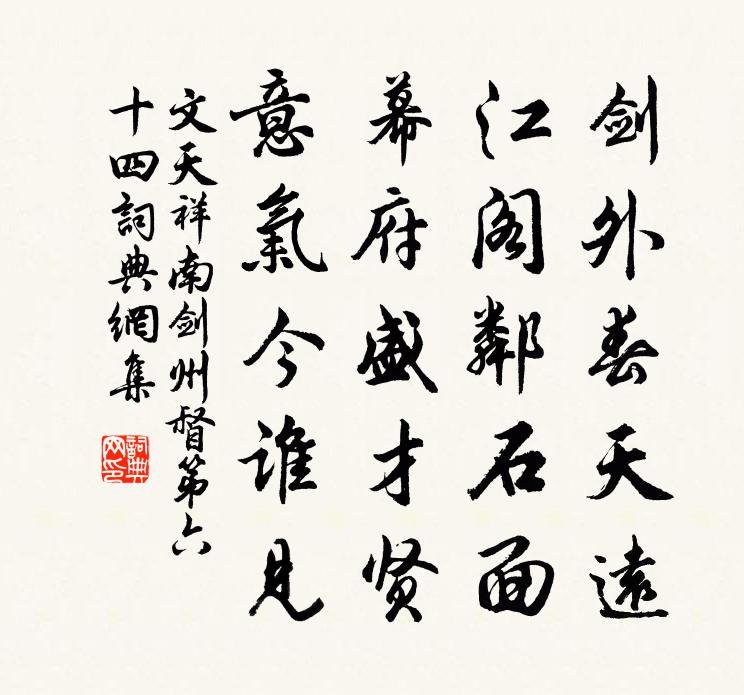 剑外春天遠
江阁鄰石面
幕府盛才贤
意氣今谁見
文天祥南剑州督第六
十四詞典網集
詞典
网印